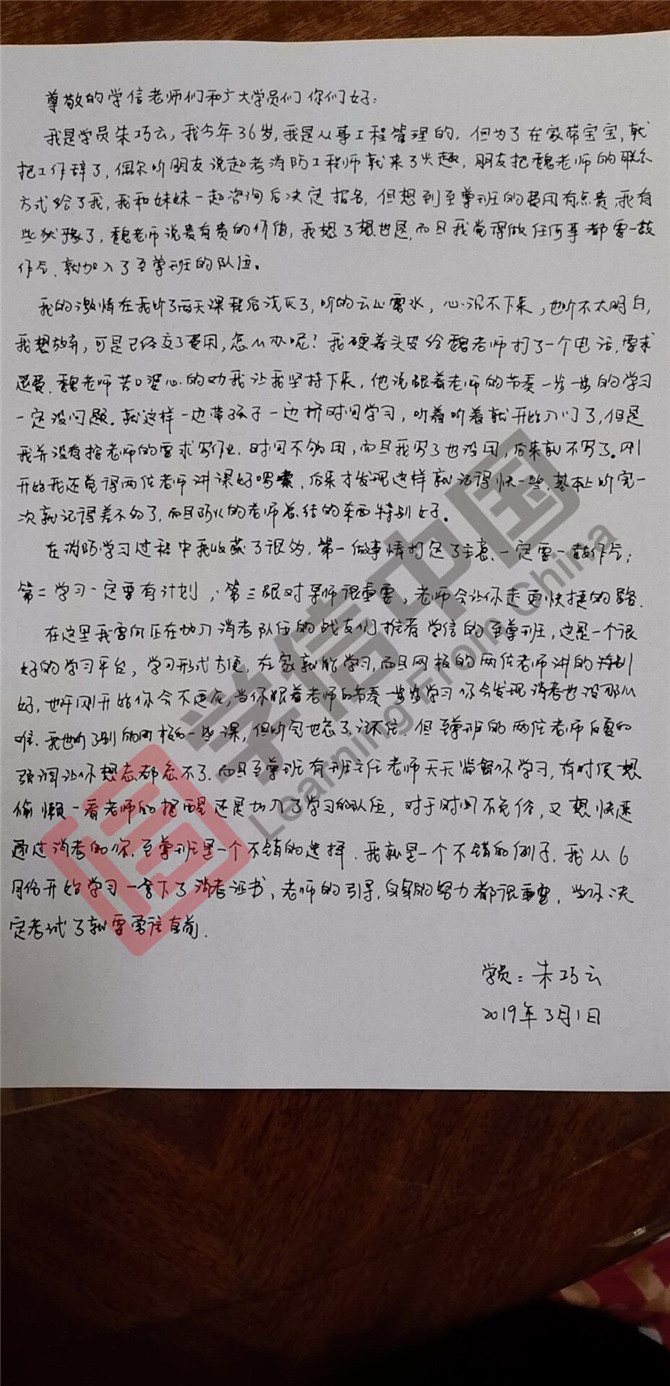 尊敬的学信老师们和广大学员们你们好:
我是学员朱巧云,我今年36岁,我是从事工程管理的,但为了在家带宝宝,就
把工作辞了,偶尔听朋友说起考消防工程师就来了兴趣,朋友把魏老师的联系
方式给了我,我和妹妹一起咨询后决定报名,但想到至尊班的费用有点贵,我有
些犹豫了,魏老师说贵有贵的价值,我想了想也是,而且我觉得做任何事都要一鼓
作气,就加入了至尊班的队伍。
我的激情在我听了两天课程后浇灭了,听的云山雾水,心沉不下来,也听不太明白,
我想放弃,可是已经交了费用,怎么办呢?我硬着头皮给魏老师打了一个电话,要求
退费,魏老师苦口婆心的劝我让我坚持下来,他说跟着老师的节奏一步一步的学习
一定没问题。就这样一边带孩子一边挤时间学习,听着听着就开始入门了,但是
我并没有按老师的要求写作业,时间不够用,而且我写了也没用,后来就不写了。刚
开始我还觉得两位老师讲课好啰嗦,后来才发现这样就记得快一些,基本上听完一
次就记得差不多了,而且防火的老师总结的东西特别好。
在消防学习过程中我收获了很多,第一做事情打定了主意,一定要一鼓作气;
第二学习一定要有计划;第三跟对导师很重要,老师会让你走更快捷的路.
在这里我要向正在加入消考队伍的战友们推荐学信的至尊班,这是一个很
好的学习平台,学习形式方便,在家就能学习,而且网校的两位老师讲的特别
好,也许刚开始你会不适应,当你跟着老师的节奏一步步学习你会发现消考也没那么
难.我也听了别的网校的一些课,但听完也忘了,记不住,但至尊班的两位老师反复的
强调让你想忘都忘不了.而且至尊班有班主任老师天天监督你学习,有时候想
偷懒一看老师的提醒还是加入了学习的队伍,对于时间不充份,又想快速
通过消考的你.至尊班是一个不错的选择.我就是一个不错的例子.我从6
月份开始学习一举拿下了消考证书,老师的引导,自身的努力都很重要,当你决
定考试了就要勇往直前.
学员:朱巧云
2019年3月1日
学信中国
Learning From China